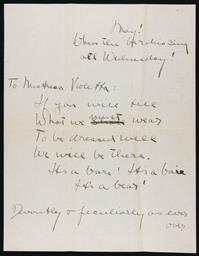 May!
When the birdies sing
all Wednesday!
To Mistress Violetta:
If you will tell
What we must wear
To be dressed well
We will be there.
It's a bare! It's a bare
It's a bear!
Devoutly & peculiarly as ever
ours